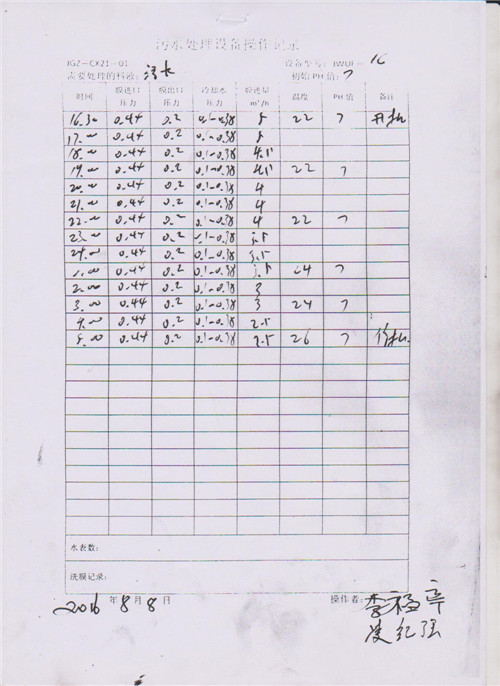 污水处理设备操作记录
JGZ-CX21-01 设备型号: JWUF-16
需要处理的料液: 清水 初始PH值: 7
时间 膜进口压力 膜出口压力 冷却水压力 膜透量 m³/h 温度 PH值 备注
16.30 0.44 0.2 0.1-0.38 5 22 7 开机
17.00 0.44 0.2 0.1-0.38 5
18.00 0.44 0.2 0.1-0.38 4.5
19.00 0.44 0.2 0.1-0.38 4.5 22 7
20.00 0.44 0.2 0.1-0.38 4
21.00 0.44 0.2 0.1-0.38 4
22.00 0.44 0.2 0.1-0.38 4 22 7
23.00 0.44 0.2 0.1-0.38 3.5
24.00 0.44 0.2 0.1-0.38 3.5
1.00 0.44 0.2 0.1-0.38 3.5 24 7
2.00 0.44 0.2 0.1-0.38 3
3.00 0.44 0.2 0.1-0.38 3 24 7
4.00 0.44 0.2 0.1-0.38 2.5
5.00 0.44 0.2 0.1-0.38 2.5 26 7 停机
水表数:
洗膜记录:
2016年8月8日 操作者: 李
凌红强